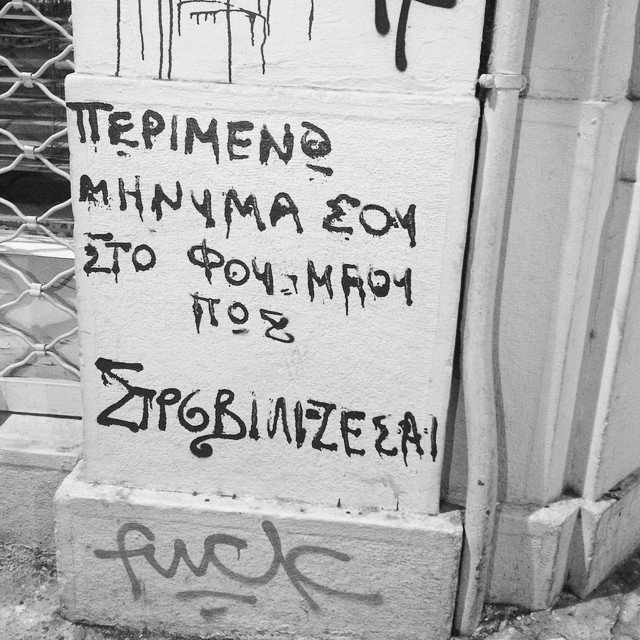 ΠΕΡΙΜΕΝΩ
ΜΗΝΥΜΑ ΣΟΥ
ΣΤΟ ΦΟΥ-ΜΠΟΥ
ΠΩΣ
ΣΤΡΟΒΙΛΙΖΕΣΑΙ
fuck